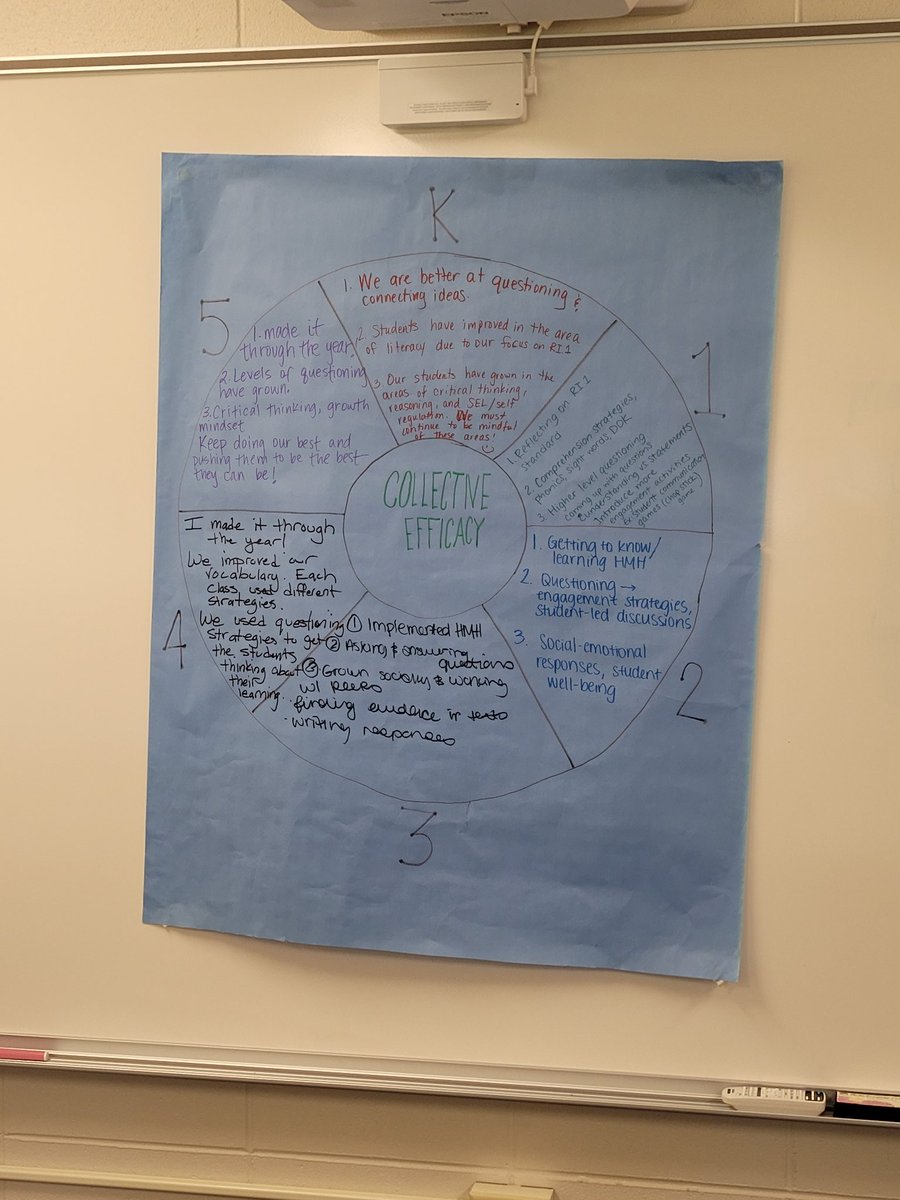 EPSON
K
1. We are better at questioning &
connecting ideas.
2. Students have improved in the area
of literacy due to our focus on RI.1
3. Our students have grown in the
areas of critical thinking,
reasoning, and SEL/self
regulation. We must
continue to be mindful
of these areas!
1
1. Reflecting on RI.1
standard
2. Comprehension strategies,
phonics, sight words, DOK
3. Higher level questioning
coming up with questions
understanding vs statements
Introduce more
engagement activities
Ex student communicator
games (chop stick)
game
2
1. Getting to know/
learning HMH
2. Questioning →
engagement strategies,
student-led discussions
3. Social-emotional
responses, student
well-being
3
① Implemented HMH
② Asking & answering
questions
③ Grown socially & working
w/ peers
· finding evidence in texts
· writing responses
4
I made it through
the year!
We improved our
vocabulary. Each
class used different
strategies.
We used questioning
strategies to get
the students
thinking about
their
learning.
5
1. made it
through the year!
2. Levels of questioning
have grown.
3. Critical thinking, growth
mindset
Keep doing our best and
pushing them to be the best
they can be!
COLLECTIVE
EFFICACY